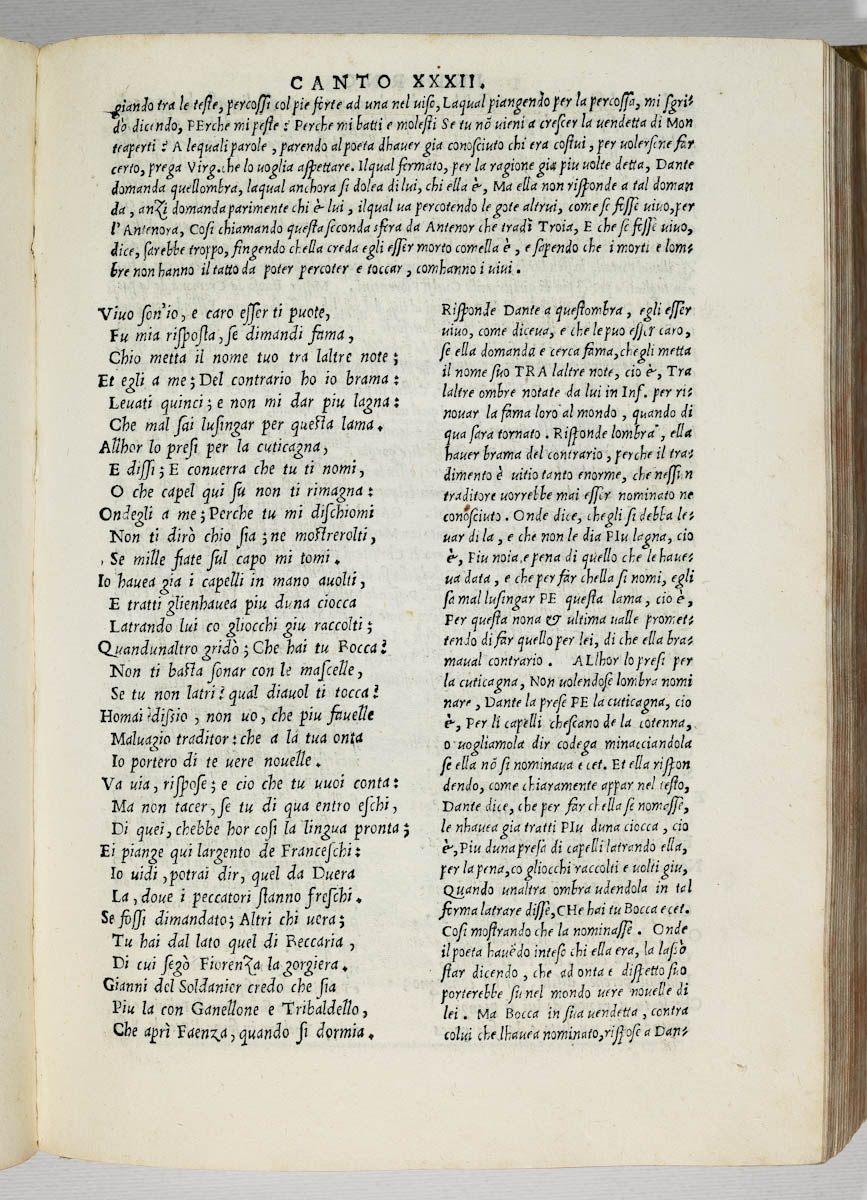 CANTO XXXII.
giando tra le teste, percossi col pie forte ad una nel uiso, Laqual piangendo per la percossa, mi sgri-
dò dicendo, PErche mi peste? Perche mi batti e molesti Se tu nõ uieni a crescer la uendetta di Mon
teaperti? A lequali parole, parendo al poeta dhauer gia conosciuto chi era costui, per uolersene far
certo, prega Virg. che lo uoglia aspettare. Ilqual fermato, per la ragione gia piu uolte detta, Dante
domanda quellombra, laqual anchora si dolea di lui, chi ella è, Ma ella non risponde a tal doman
da, anzi domanda parimente chi è lui, ilqual ua percotendo le gote altrui, come se fosse uiuo, per
l'Antenora, Cosi chiamando questa seconda sfera da Antenor che tradì Troia, E che se fosse uiuo,
dice, sarebbe troppo, fingendo chella creda egli esser morto comella è, e sapendo che i morti e lom-
bre non hanno il tatto da poter percoter e toccar, comhanno i uiui.
Viuo son'io, e caro esser ti puote,
Fu mia risposta, se dimandi fama,
Chio metta il nome tuo tra laltre note;
Et egli a me; Del contrario ho io brama:
Leuati quinci; e non mi dar piu lagna:
Che mal sai lusingar per questa lama.
Allhor lo presi per la cuticagna,
E dissi; E conuerra che tu ti nomi,
O che capel qui su non ti rimagna:
Ondegli a me; Perche tu mi dischiomi
Non ti dirò chio sia; ne mostrerolti,
Se mille fiate sul capo mi tomi.
Io hauea gia i capelli in mano auolti,
E tratti glienhauea piu duna ciocca
Latrando lui co gliocchi giu raccolti;
Quandunaltro gridò; Che hai tu Bocca?
Non ti basta sonar con le mascelle,
Se tu non latri? qual diauol ti tocca?
Homai dissio, non uo, che piu fauelle
Maluagio traditor: che a la tua onta
Io portero di te uere nouelle.
Va uia, rispose; e cio che tu uuoi conta:
Ma non tacer, se tu di qua entro eschi,
Di quei, chebbe hor cosi la lingua pronta;
Ei piange qui largento de Franceschi:
Io uidi, potrai dir, quel da Duera
La, doue i peccatori stanno freschi.
Se fossi dimandato; Altri chi uera;
Tu hai dal lato quel di Beccaria,
Di cui segò Fiorenza la gorgiera.
Gianni del Soldanier credo che sia
Piu la con Ganellone e Tribaldello,
Che aprì Faenza, quando si dormia.
Risponde Dante a questombra, egli esser
uiuo, come diceua, e che le puo esser caro,
se ella domanda e cerca fama, chegli metta
il nome suo TRA laltre note, cio è, Tra
laltre ombre notate da lui in Inf. per ri-
nouar la fama loro al mondo, quando di
qua sara tornato. Risponde lombra, ella
hauer brama del contrario, perche il tra-
dimento è uitio tanto enorme, che nessun
traditore uorrebbe mai esser nominato ne
conosciuto. Onde dice, chegli si debba le-
uar di la, e che non le dia PIu lagna, cio
è, Piu noia e pena di quello che le haue-
ua data, e che per far chella si nomi, egli
sa mal lusingar PE questa lama, cio è,
Per questa nona & ultima ualle promet-
tendo di far quello per lei, di che ella bra-
maual contrario. ALlhor lo presi per
la cuticagna, Non uolendose lombra nomi
nare, Dante la prese PE la cuticagna, cio
è, Per li capelli chescano de la cotenna,
o uogliamola dir codega minacciandola
se ella nõ si nominaua e cet. Et ella rispon
dendo, come chiaramente appar nel testo,
Dante dice, che per far chella se nomasse,
le nhauea gia tratti PIu duna ciocca, cio
è, Piu duna presa di capelli latrando ella,
per la pena, co gliocchi raccolti e uolti giu,
Quando unaltra ombra udendola in tal
forma latrare disse, CHe hai tu Bocca e cet.
Cosi mostrando che la nominasse. Onde
il poeta hauẽdo inteso chi ella era, la lasciò
star dicendo, che ad onta e dispetto suo
porterebbe su nel mondo uere nouelle di
lei. Ma Bocca in sua uendetta, contra
colui che lhauea nominato, rispose a Dan-